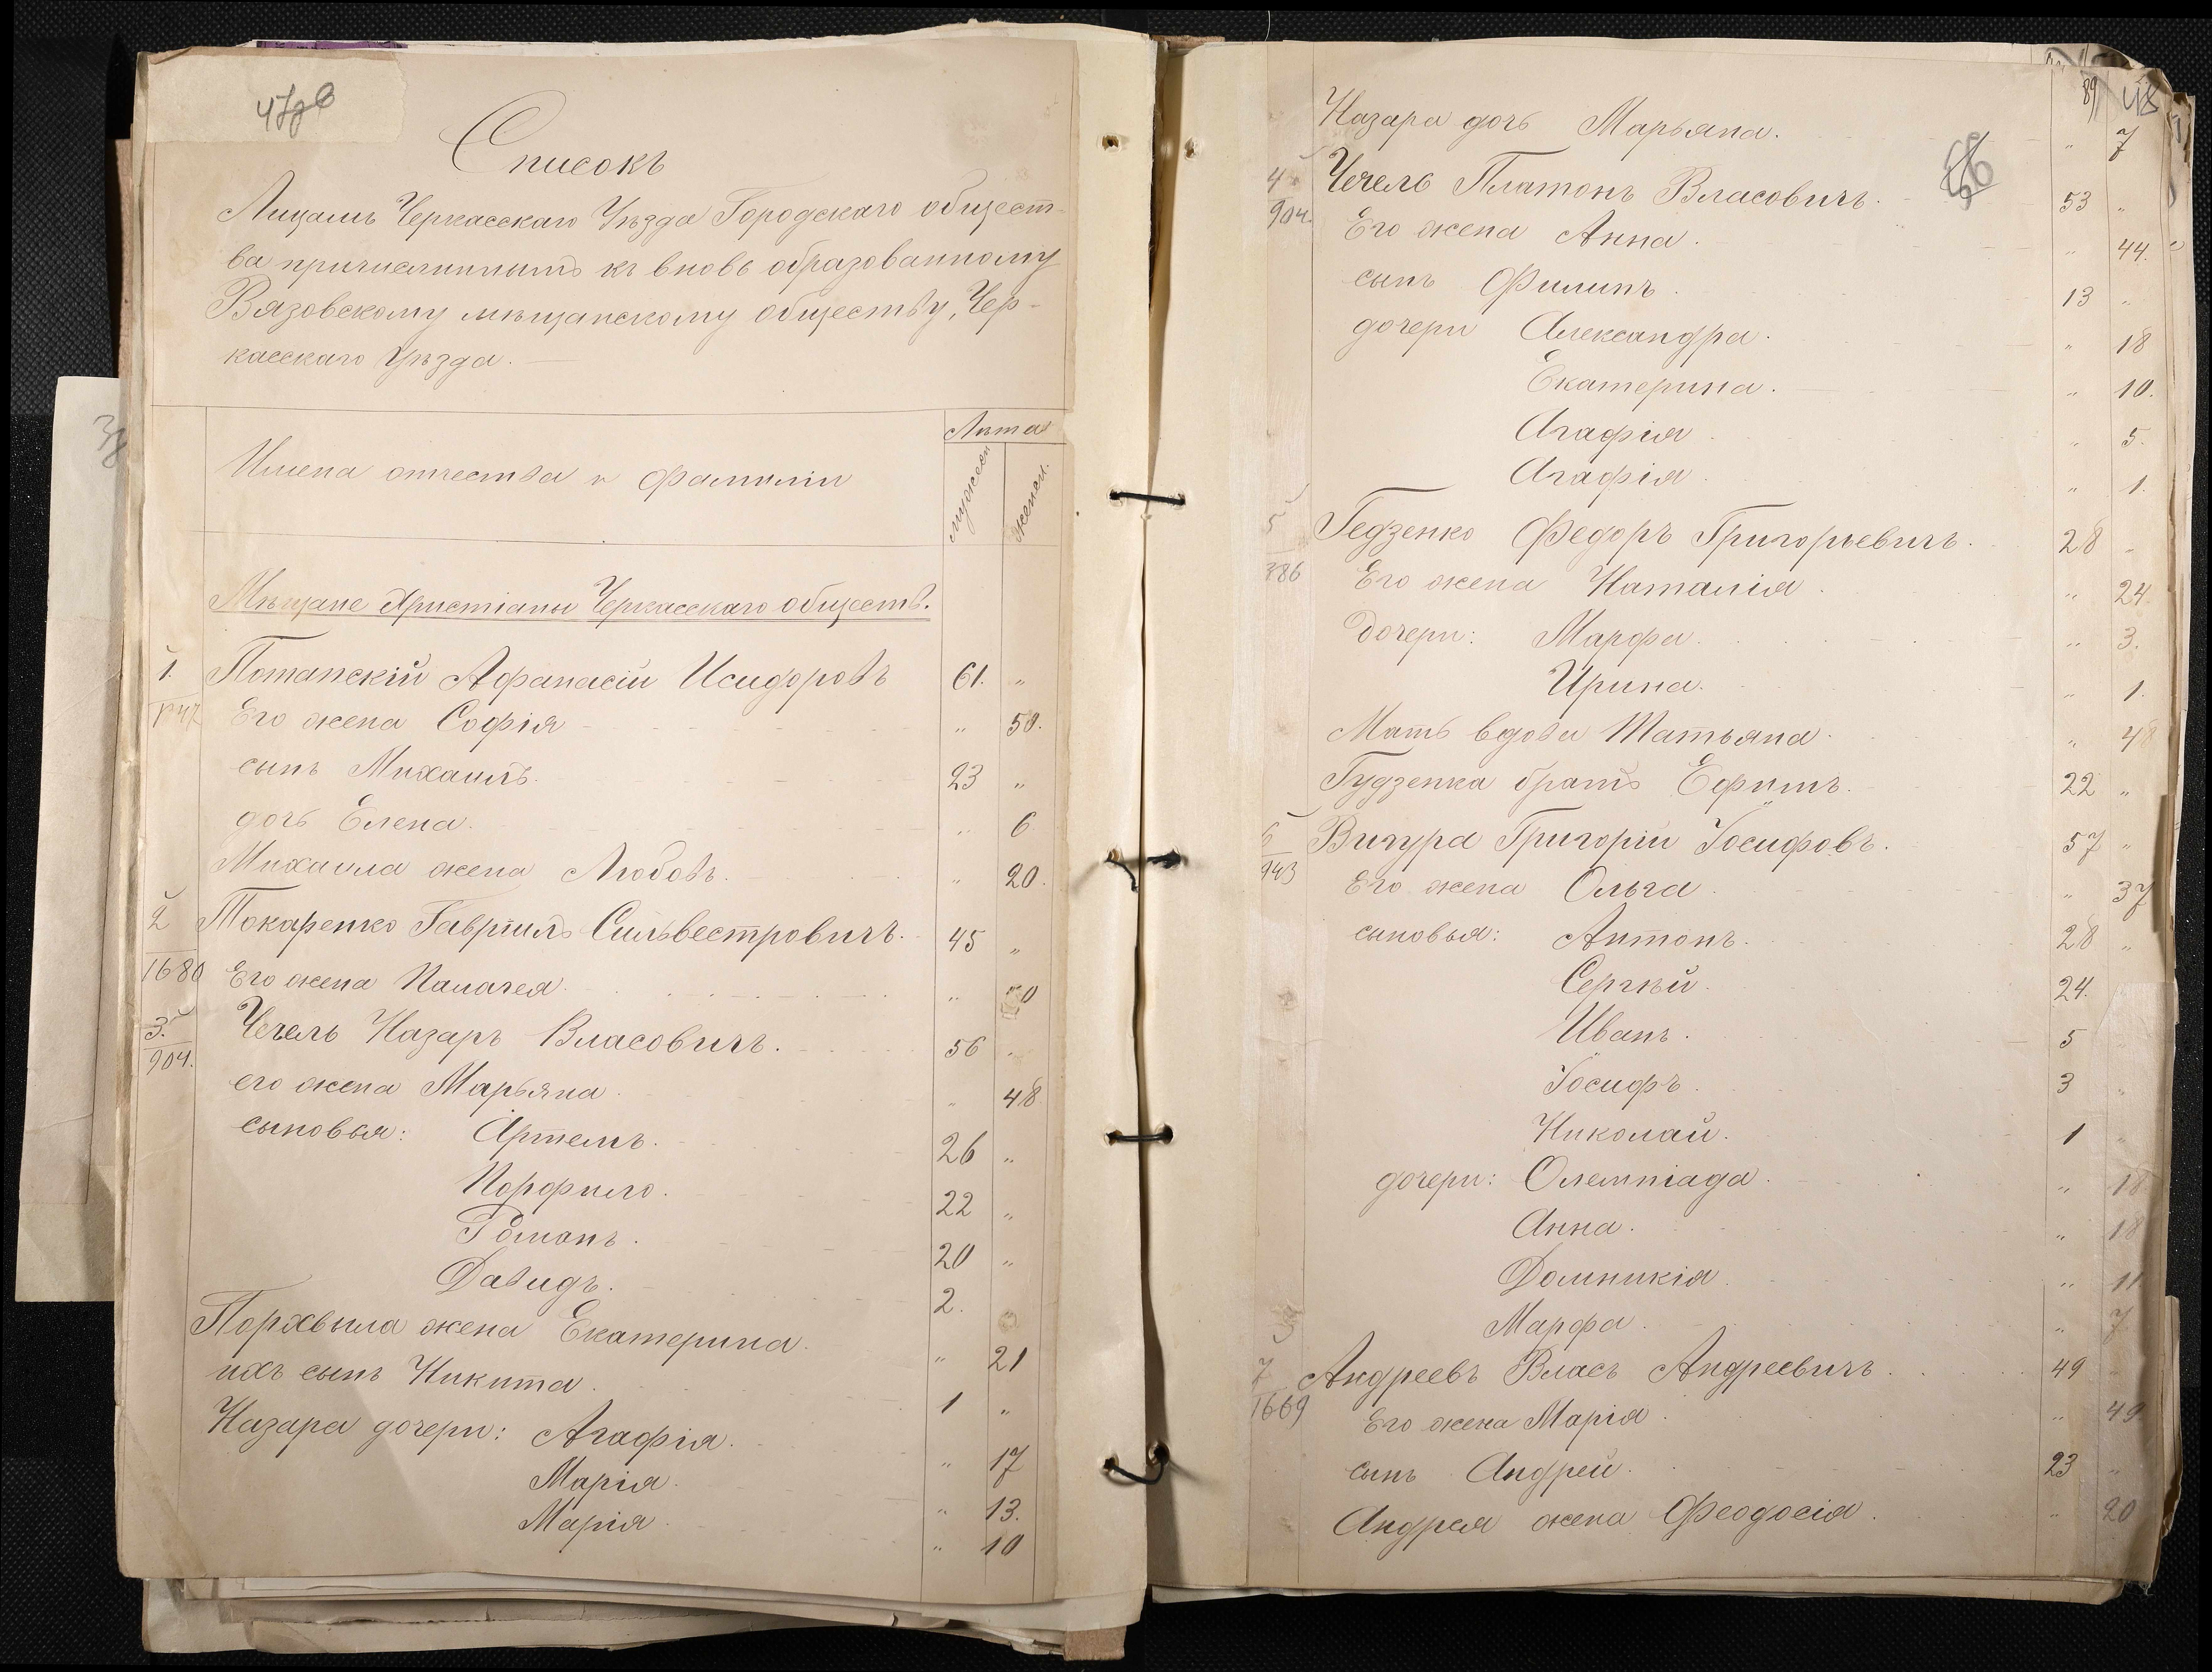 Списокъ
Лицамъ Черкасскаго Уѣзда Городскаго общест-
ва причисленнымъ къ вновь образованному
Вязовскому мѣщанскому обществу, Чер-
касскаго уѣзда.
Лѣта
Имена отчества и фамиліи
мужеск женск.
Мѣщане Христіаны Черкасскаго обществ.
1. Потапскій Афанасій Исидоровъ 61. "
Его жена Софія " 50.
сынъ Михаилъ. 23 "
дочь Елена. " 6
Михаила жена Любовь. " 20.
2 Токаренко Гавріилъ Сильвестровичъ. 45 "
1680 Его жена Палагея. " 50
3. Чечель Назаръ Власовичъ. 56 "
904. его жена Марьяна. " 48
сыновья: Артемъ. 26 "
Порфило. 22 "
Романъ. 20 "
Давидъ. 2. "
Порхвыла жена Екатерина. " 21
ихъ сынъ Никита. 1 "
Назара дочери: Агафія. " 17
Марія. " 13.
Марія. " 10
89 48
Назара дочь Марьяна. " 7
4 Чечель Платонъ Власовичъ. 53 "
904. Его жена Анна. " 44.
сынъ Филипъ. 13 "
дочери Александра. " 18
Екатерина. " 10.
Агафія. " 5.
Агафія. " 1.
5 Гедзенко Федоръ Григорьевичъ. 28 "
386 Его жена Наталія. " 24.
дочери: Марфа. " 3.
Ирина. " 1.
Мать вдова Татьяна. " 48
Гудзенка братъ Ефимъ. 22 "
6 Вичура Григорій Іосифовъ. 57 "
943 Его жена Ольга. " 37
сыновья: Антонъ. 28 "
Сергѣй. 24.
Иванъ. 5
Іосифъ. 3 "
Николай. 1 "
дочери: Олемпіада. " 18
Анна. " 18
Домникія. " 11
Марфа. " 7
7 Андреевъ Власъ Андреевичъ. 49 "
1669 Его жена Марія. " 49
сынъ Андрей. 23 "
Андрея жена Феодосія. " 20